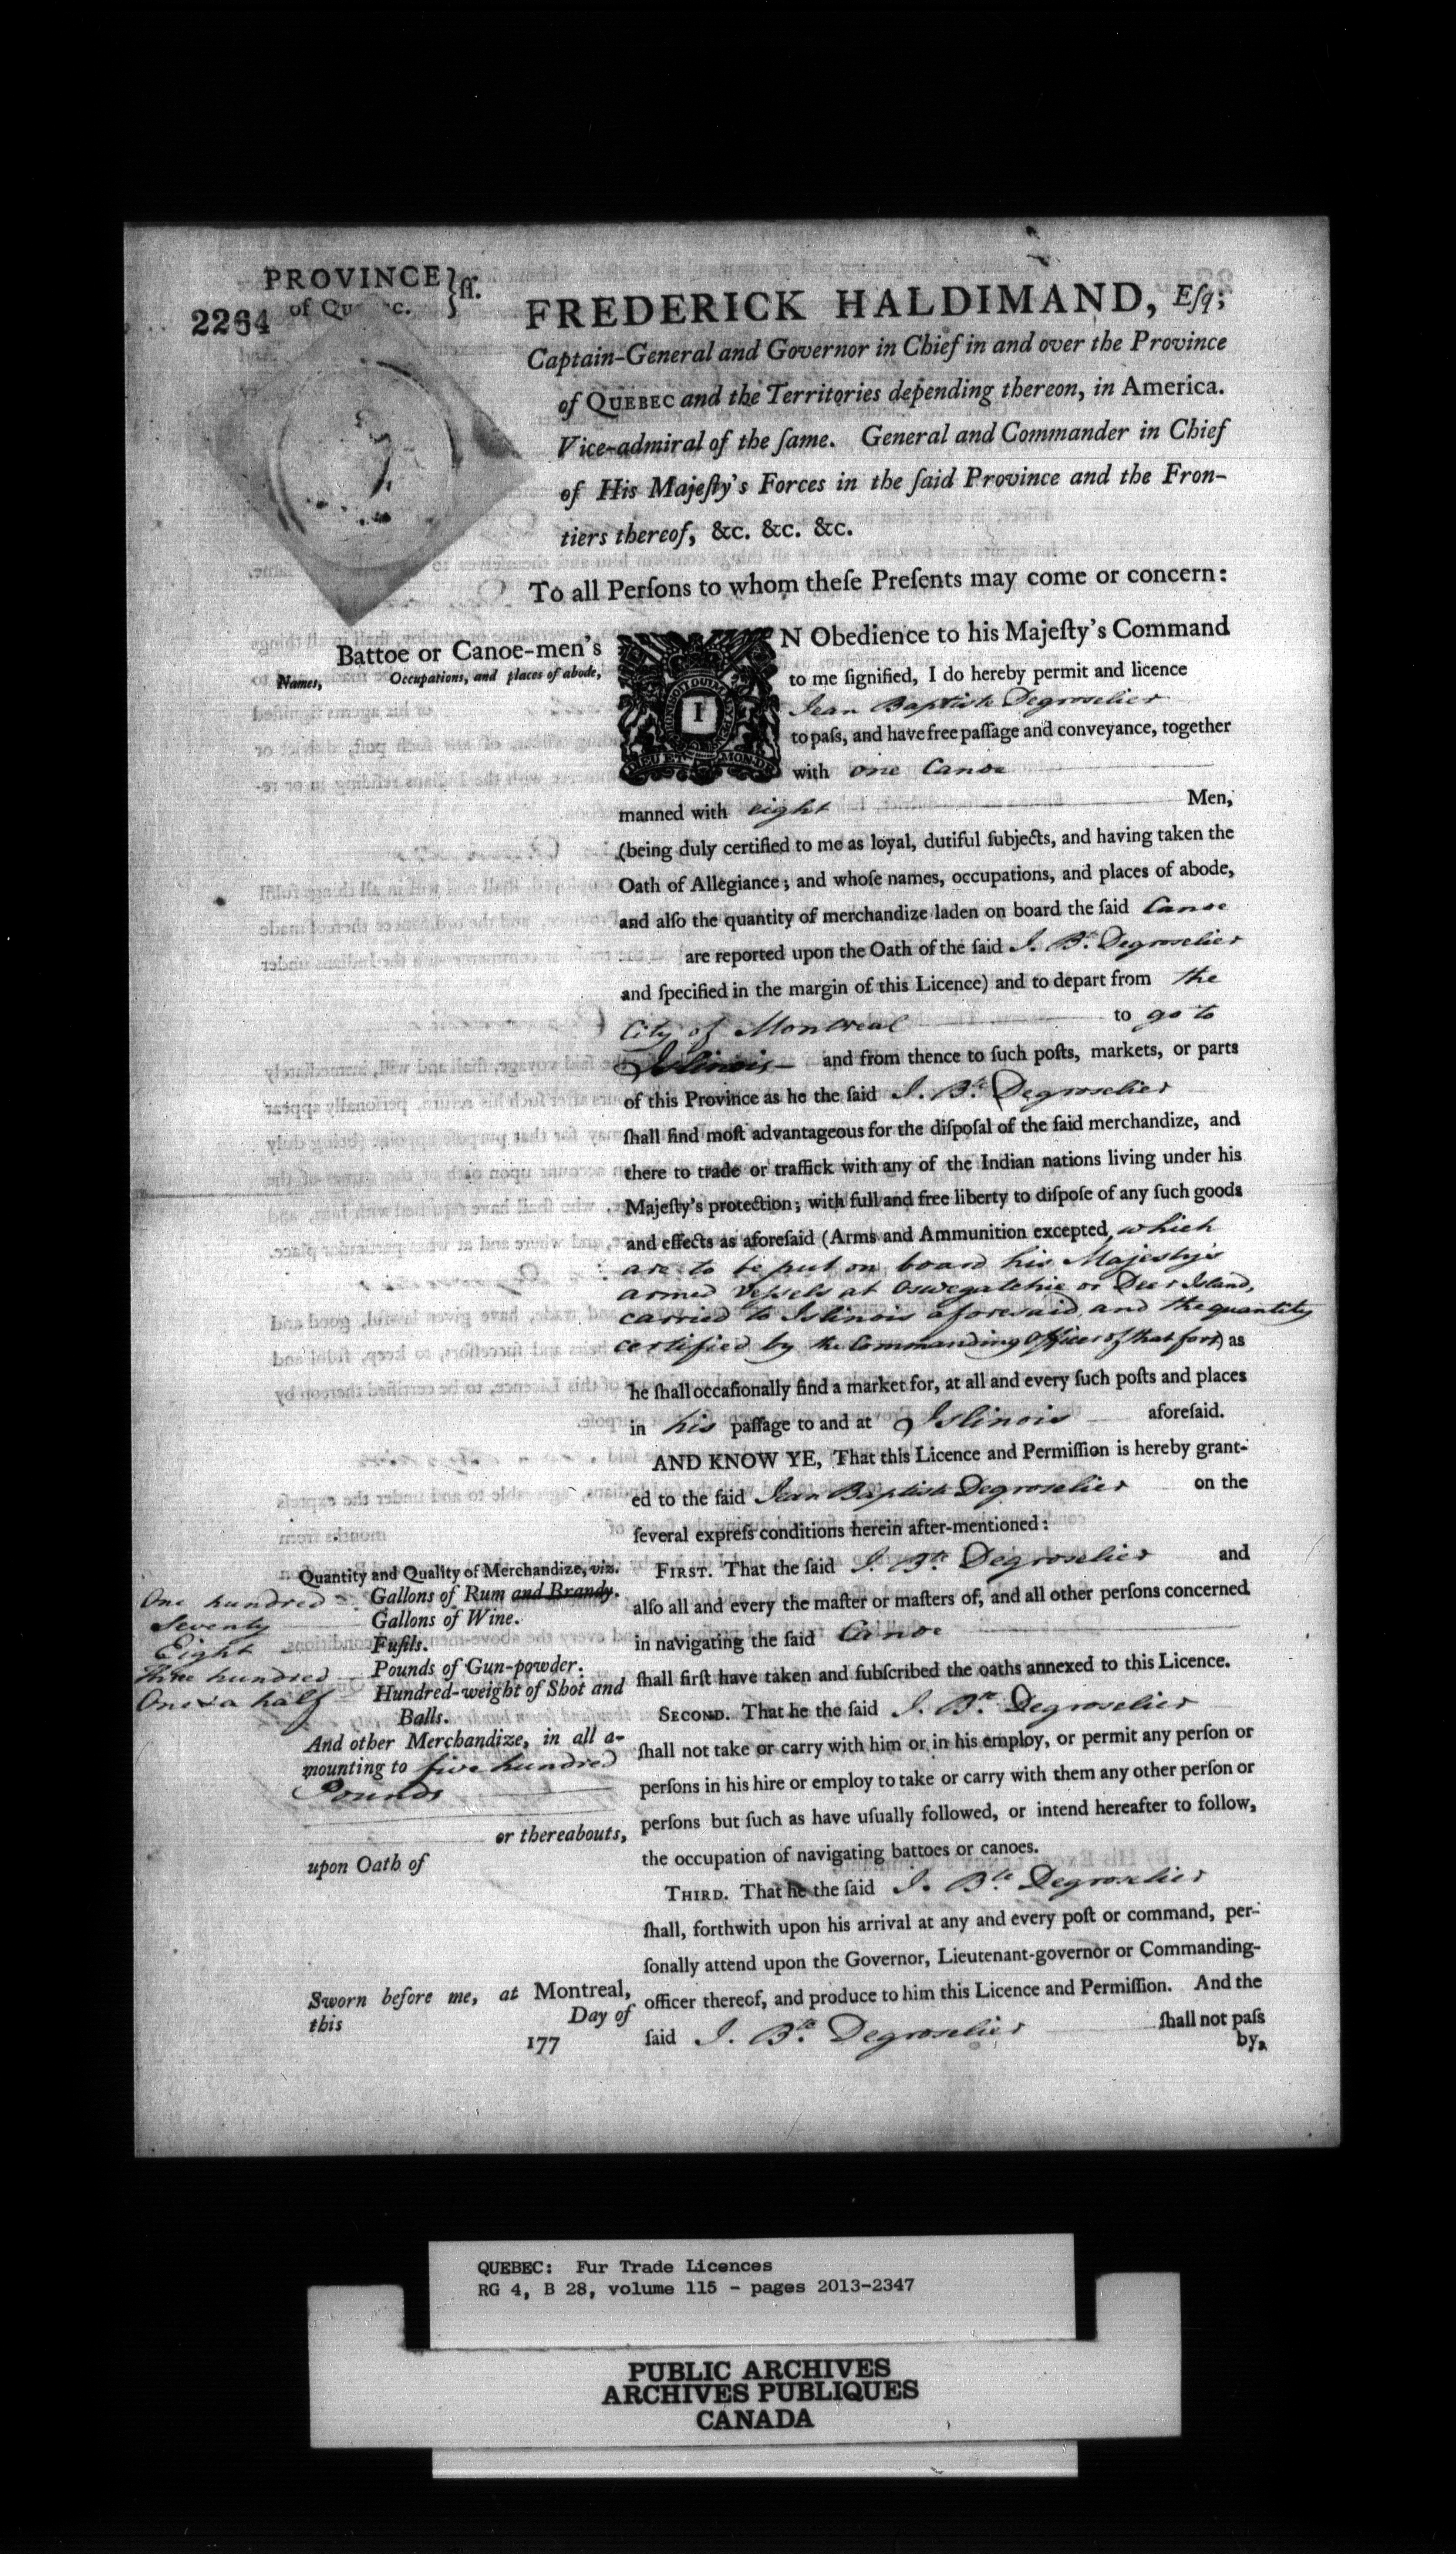 PROVINCE } ſſ.
of Qu c.
2264
FREDERICK HALDIMAND, Eſq;
Captain-General and Governor in Chief in and over the Province
of QUEBEC and the Territories depending thereon, in America.
Vice-admiral of the ſame. General and Commander in Chief
of His Majeſty's Forces in the ſaid Province and the Fron-
tiers thereof, &c. &c. &c.
To all Perſons to whom theſe Preſents may come or concern:
Battoe or Canoe-men's
Names, Occupations, and places of abode,
IN Obedience to his Majeſty's Command
to me ſignified, I do hereby permit and licence
Jean Baptiste Degroselier
to paſs, and have free paſſage and conveyance, together
with one Canoe
manned with eight Men,
(being duly certified to me as loyal, dutiful ſubjects, and having taken the
Oath of Allegiance; and whoſe names, occupations, and places of abode,
and alſo the quantity of merchandize laden on board the ſaid Canoe
are reported upon the Oath of the ſaid J. Bte. Degroselier
and ſpecified in the margin of this Licence) and to depart from the
City of Montreal to go to
Islinois and from thence to ſuch poſts, markets, or parts
of this Province as he the ſaid J. Bte. Degroselier
ſhall find moſt advantageous for the diſpoſal of the ſaid merchandize, and
there to trade or traffick with any of the Indian nations living under his
Majeſty's protection; with full and free liberty to diſpoſe of any ſuch goods
and effects as aforeſaid (Arms and Ammunition excepted, which
are to be put on board his Majesty's
armed Vessels at Oswegatchie or Deer Island,
carried to Islinois aforesaid and the quantity
certified by the Commanding Officer of that fort) as
he ſhall occaſionally find a market for, at all and every ſuch poſts and places
in his paſſage to and at Islinois aforeſaid.
AND KNOW YE, That this Licence and Permiſſion is hereby grant-
ed to the ſaid Jean Baptiste Degroselier on the
ſeveral expreſs conditions herein after-mentioned:
FIRST. That the ſaid J. Bte. Degroselier and
alſo all and every the maſter or maſters of, and all other perſons concerned
in navigating the ſaid Canoe
ſhall firſt have taken and ſubſcribed the oaths annexed to this Licence.
SECOND. That he the ſaid J. Bte. Degroselier
ſhall not take or carry with him or in his employ, or permit any perſon or
perſons in his hire or employ to take or carry with them any other perſon or
perſons but ſuch as have uſually followed, or intend hereafter to follow,
the occupation of navigating battoes or canoes.
THIRD. That he the ſaid J. Bte. Degroselier
ſhall, forthwith upon his arrival at any and every poſt or command, per-
ſonally attend upon the Governor, Lieutenant-governor or Commanding-
officer thereof, and produce to him this Licence and Permiſſion. And the
ſaid J. Bte. Degroselier ſhall not paſs
by,
Quantity and Quality of Merchandize, viz.
One hundred Gallons of Rum and Brandy.
Seventy Gallons of Wine.
Eight Fuſils.
Three hundred Pounds of Gun-powder.
One & a half Hundred-weight of Shot and
Balls.
And other Merchandize, in all a-
mounting to five hundred
Pounds
or thereabouts,
upon Oath of
Sworn before me, at Montreal,
this Day of
177
QUEBEC: Fur Trade Licences
RG 4, B 28, volume 115 - pages 2013-2347
PUBLIC ARCHIVES
ARCHIVES PUBLIQUES
CANADA